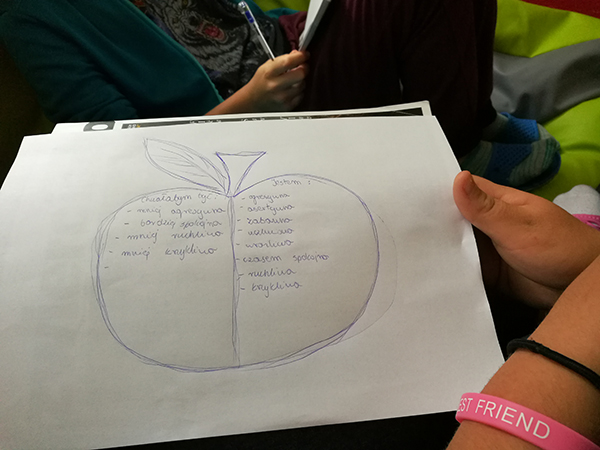 chciałabym być:
- mniej agresywna
- bardziej spokojna
- mniej ruchliwa
- mniej krykliwa
-
Jestem:
- agresywna
- asertywna
- zabawna
- wrażliwa
- czasem spokojna
- ruchliwa
- krykliwa
EST FRIEND